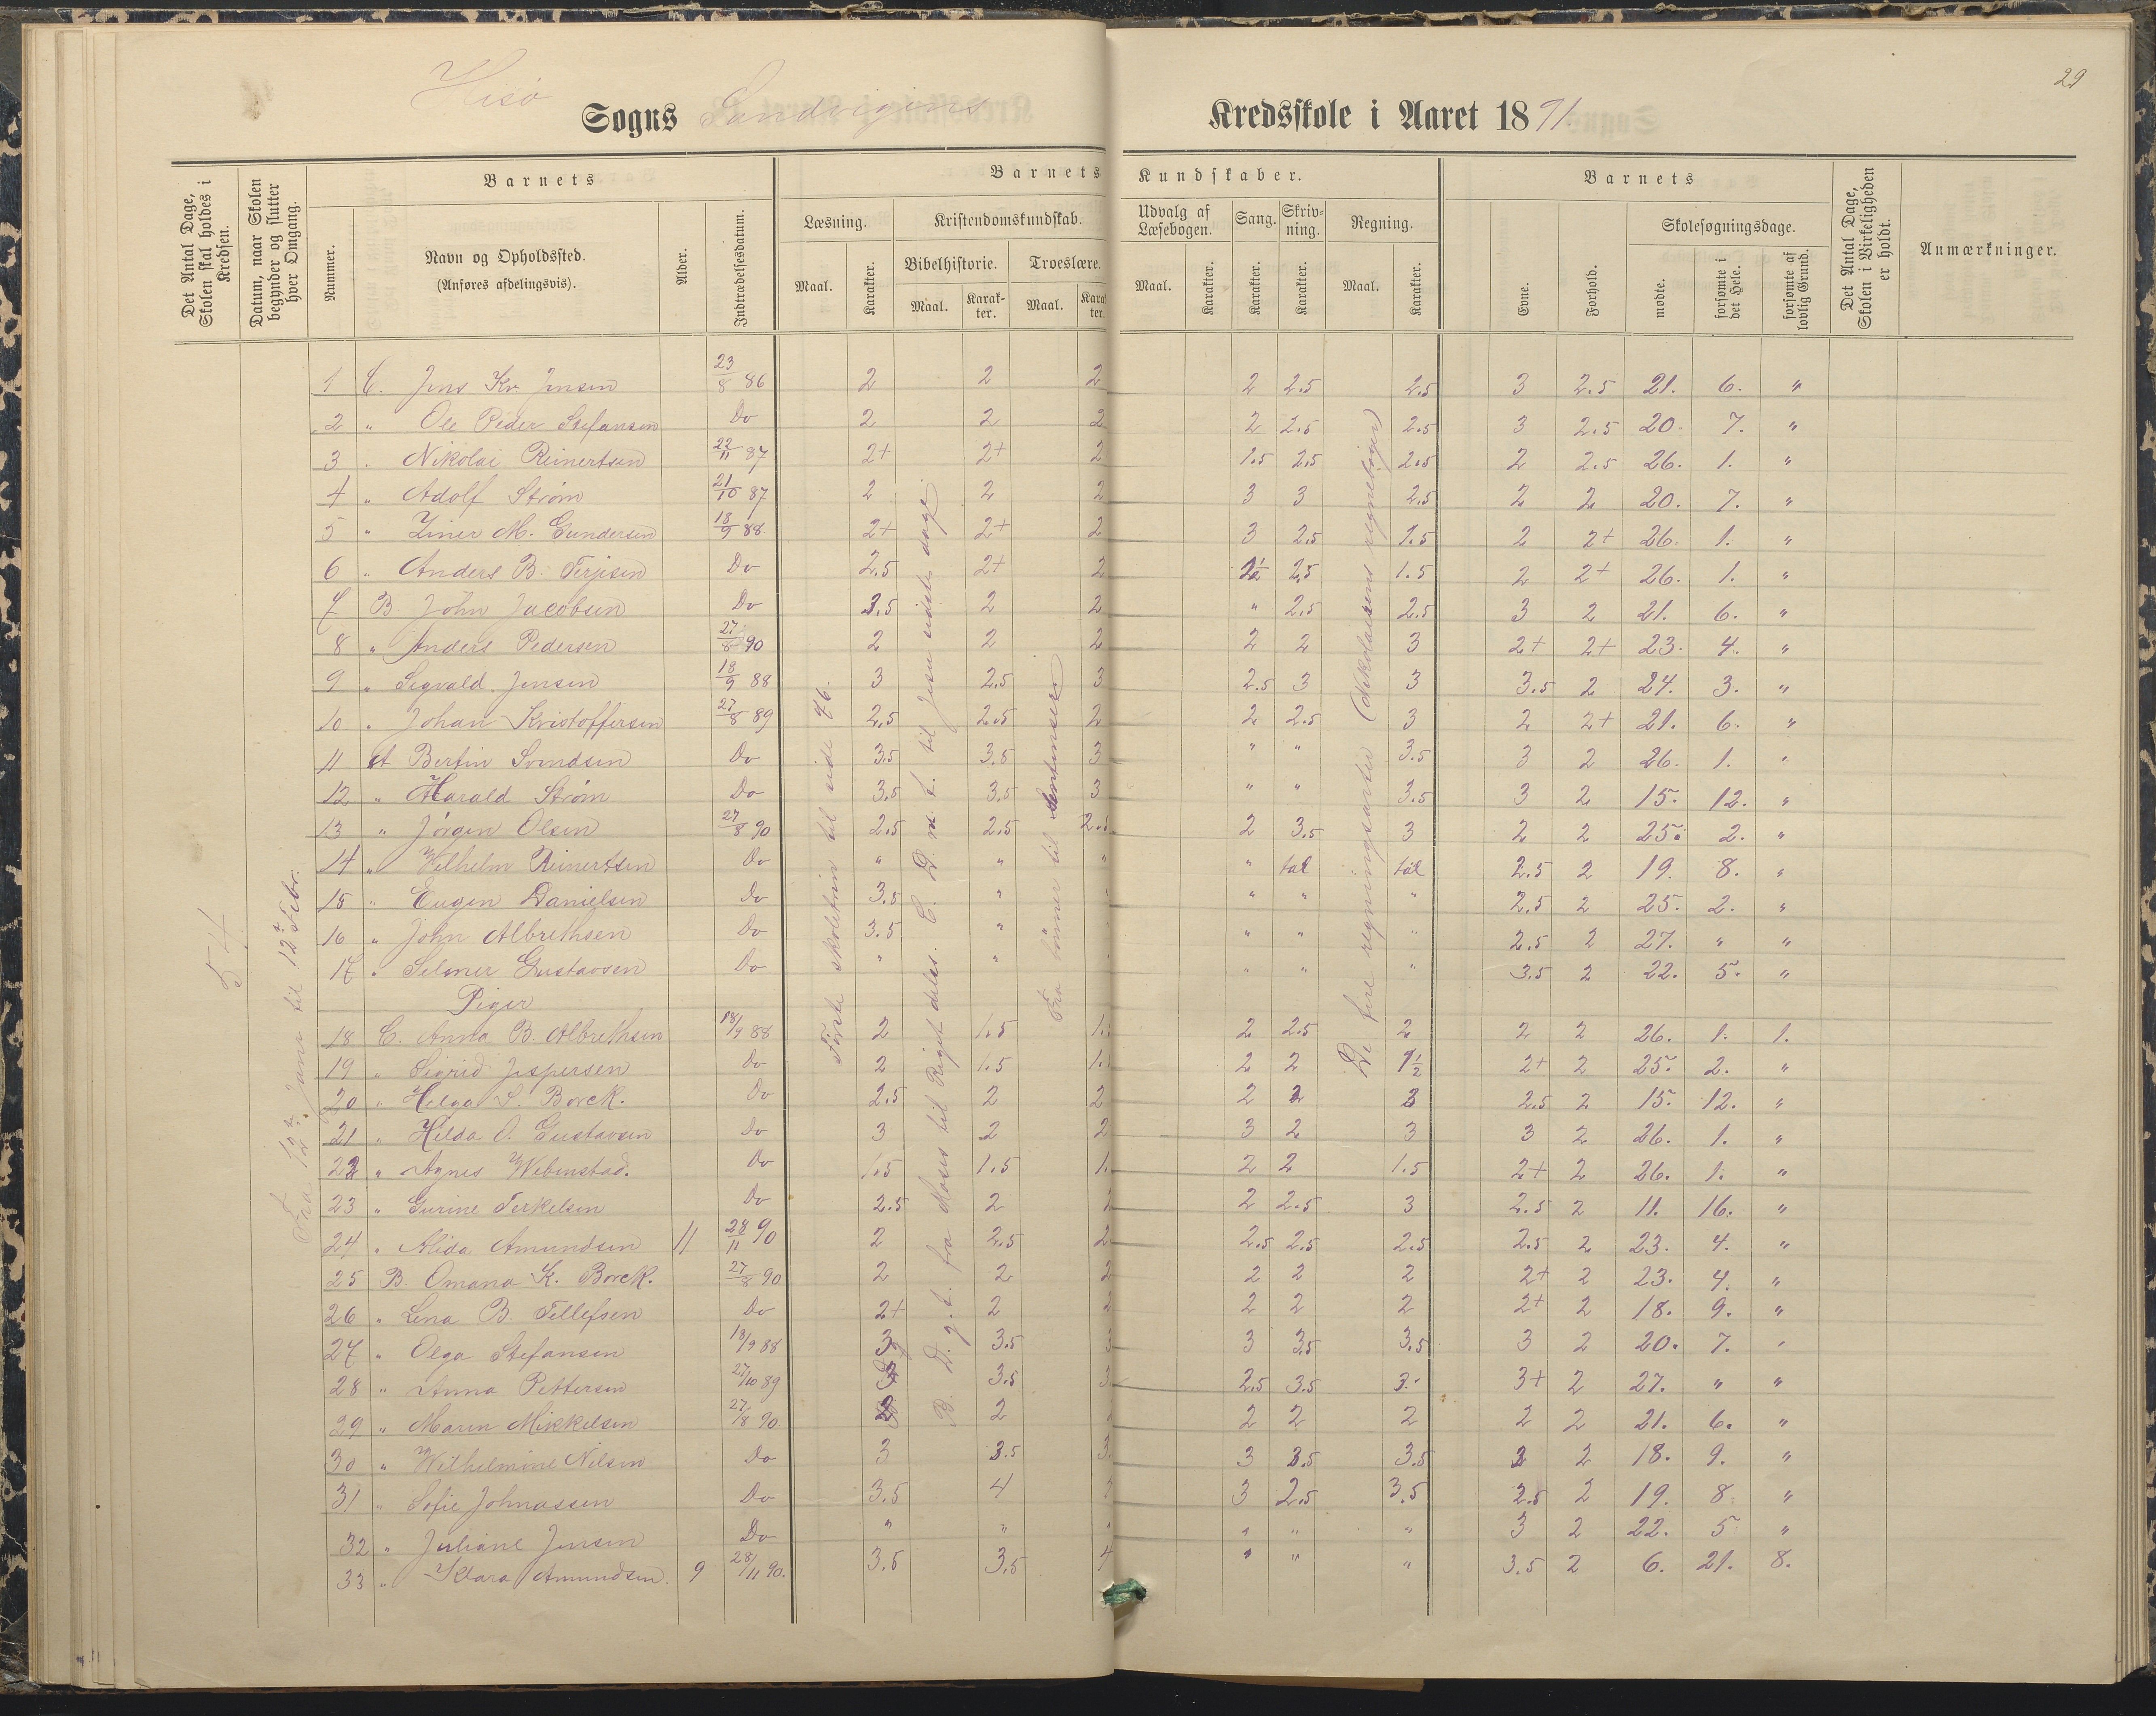 29
Hisö
Sogns Sandvigens Kredsskole i Aaret 1891.
Det Antal Dage, Skolen skal holdes i Kredsen.
Datum, naar Skolen begynder og slutter hver Omgang.
Barnets
Nummer.
Navn og Opholdssted.
(Anføres afdelingsvis).
Alder.
Indtrædelsesdatum.
Barnets Kundskaber.
Læsning.
Maal.
Karakter.
Kristendomskundskab.
Bibelhistorie.
Maal.
Karak-ter.
Troeslære.
Maal.
Karak ter.
Udvalg af Læsebogen.
Maal.
Karakter.
Sang.
Karakter.
Skriv-ning.
Karakter.
Regning.
Maal.
Karakter.
Barnets
Evne.
Forhold.
Skolesøgningsdage.
mødte.
forsømte i det Hele.
forsømte af lovlig Grund.
Det Antal Dage, Skolen i Virkeligheden er holdt.
Anmærkninger.
54
til 12te Febr.
Første skoletrin til side 76.
B. D. g. t. fra Moses til Riget deles. C. D. n. t. til Jesu sidste dage
Fra bønner til
De fire regningsarter (Nikolaisens regnebøger)
1 C. Jens Kr. Jensen 23/8 86 2 2 2 2 2.5 2.5 3 2.5 21. 6. "
2 " Ole Peder Stefansen Do 2 2 2 2 2.5 2.5 3 2.5 20. 7. "
3 " Nikolai Reinertsen 22/11 87 2+ 2+ 2 1.5 2.5 2.5 2 2.5 26. 1. "
4 " Adolf Strøm 21/10 87 2 2 2 3 3 2.5 2 2 20. 7. "
5 " Einer M. Gundersen 18/9 88 2+ 2+ 2 3 2.5 1.5 2 2+ 26. 1. "
6 " Anders B. Terjesen Do 2.5 2+ 2 2.5 1.5 2 2+ 26. 1. "
7 B. John Jacobsen Do 3.5 2 2 " 2.5 2.5 3 2 21. 6. "
8 " Anders Pedersen 27/8 90 2 2 2 2 2 3 2+ 2+ 23. 4. "
9 " Sigvald Jensen 18/9 88 3 2.5 3 2.5 3 3 3.5 2 24. 3. "
10 " Johan Kristoffersen 27/8 89 2.5 2.5 2 2 2.5 3 2 2+ 21. 6. "
11 A Bertin Svendsen Do 3.5 3.5 3 " " 3.5 3 2 26. 1. "
12 " Harald Strøm Do 3.5 3.5 3 " " 3.5 3 2 15. 12. "
13 " Jørgen Olsen 27/8 90 2.5 2.5 2.5 2 3.5 3 2 2 25. 2. "
14 " Vilhelm Reinertsen Do " " " " tal tal 2.5 2 19. 8. "
15 " Eugen Danielsen Do 3.5 " " " " " 2.5 2 25. 2. "
16 " John Albrethsen Do 3.5 " " " " " 2.5 2 27. " "
17 " Selmer Gustavsen Do " " " " " " 3.5 2 22. 5. "
Piger
18 C. Anna B. Albrethsen 18/9 88 2 1.5 1. 2 2.5 2 2 2 26. 1. 1.
19 " Sigrid Jespersen Do 2 1.5 1. 2 2 1 1/2 2+ 2 25. 2. "
20 " Helga S. Borck. Do 2.5 2 2 2 2 3 2.5 2 15. 12. "
21 " Hilda O. Gustavsen Do 3 2 2 3 2 3 3 2 26. 1. "
22 " Agnes Vebenstad. Do 1.5 1.5 1. 2 2 1.5 2+ 2 26. 1. "
23 " Gurine Terkelsen Do 2.5 2 2 2 2.5 3 2.5 2 11. 16. "
24 " Alida Amundsen 11 28/11 90 2 2.5 2 2.5 2.5 2.5 2.5 2 23. 4. "
25 B. Omana K. Borck. 27/8 90 2 2 2 2 2 2 2+ 2 23. 4. "
26 " Lena B. Tellefsen Do 2+ 2 2 2 2 2 2+ 2 18. 9. "
27 " Olga Stefansen 18/9 88 3 3.5 3 3 3.5 3.5 3 2 20. 7. "
28 " Anna Pettersen 27/10 89 3 3.5 3 2.5 3.5 3. 3+ 2 27. " "
29 " Maren Mikkelsen 27/8 90 2 2 2 2 2 2 21. 6. "
30 " Vilhelmine Nilsen Do 3 3.5 3. 3 3.5 3.5 3 2 18. 9. "
31 " Sofie Johnassen Do 3.5 4 3 2.5 3.5 2.5 2 19. 8. "
32 " Juliane Jensen Do " " " " " " 3 2 22. 5 "
33 " Klara Amundsen. 9 28/11 90. 3.5 3.5 4 " " " 3.5 2 6. 21. 8.